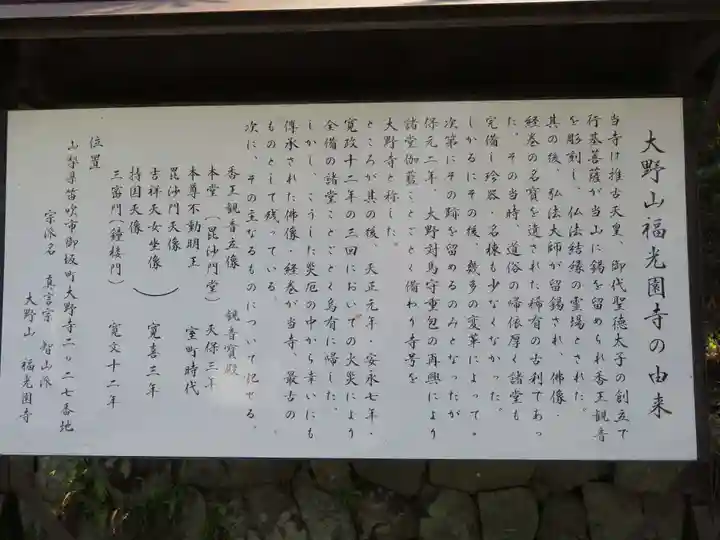 大野山福光園寺の由来
当寺は推古天皇、御代聖徳太子の創立で
行基菩薩が当山に錫を留められ香王観音
を彫刻し、仏法結縁の霊場とされた。
其の後、弘法大師が留錫され、佛像・
経巻の名寳を遺された稀有の古刹であっ
た。その当時、道俗の帰依厚く諸堂も
完備し珍器・名棟も少なくなかった。
しかるにその後、幾多の変革によって。
次第にその跡を留めるのみとなったが
保元二年、大野対馬守重包の再興により
諸堂伽藍ことごとく備わり寺号を
大野寺と称した。
ところが其の後、天正元年・安永七年・
寛政十二年の三回においての火災により
全備の諸堂ことごとく烏有に帰した。
しかし、こうした災厄の中から幸いにも
傳承された佛像、経巻が当寺、最古の
ものとして残っている。
次に、その主なるものについて記せる。
香王観音立像 観音寳殿
本堂(毘沙門堂) 天保三年
本尊不動明王 室町時代
毘沙門天像
吉祥天女坐像 寛喜三年
持国天像
三富門(鐘楼門) 寛文十二年
位置
山梨県笛吹市御坂町大野寺二〇二七番地
宗派名 真言宗 智山派
大野山 福光園寺